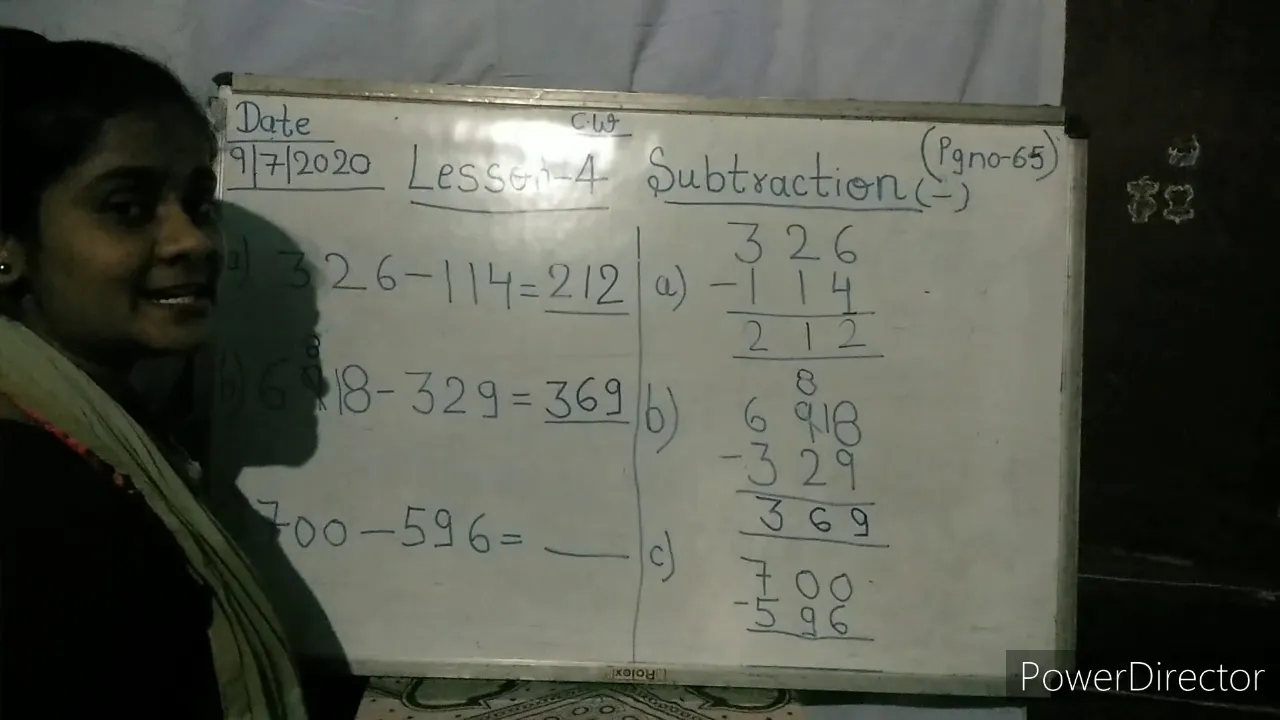 Date
9/7/2020
C.W
Lesson-4 Subtraction (-)
(Pgno-65)
a) 326-114=212
b) 6 8 9 18-329=369
700-596=
a) 326
-114
212
b) 8
6 9 18
-329
369
c) 700
-596
Rolex
PowerDirector